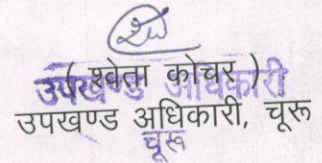 ( श्वेता कोचर )
उपखण्ड अधिकारी
उपखण्ड अधिकारी, चूरू
चूरू